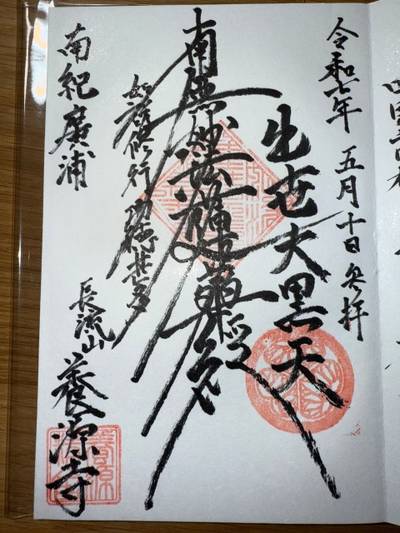 令和七年 五月十日
出世大黒天
南無妙法蓮華経
如説修行 功徳甚多
南紀廣浦
長流山 養源寺